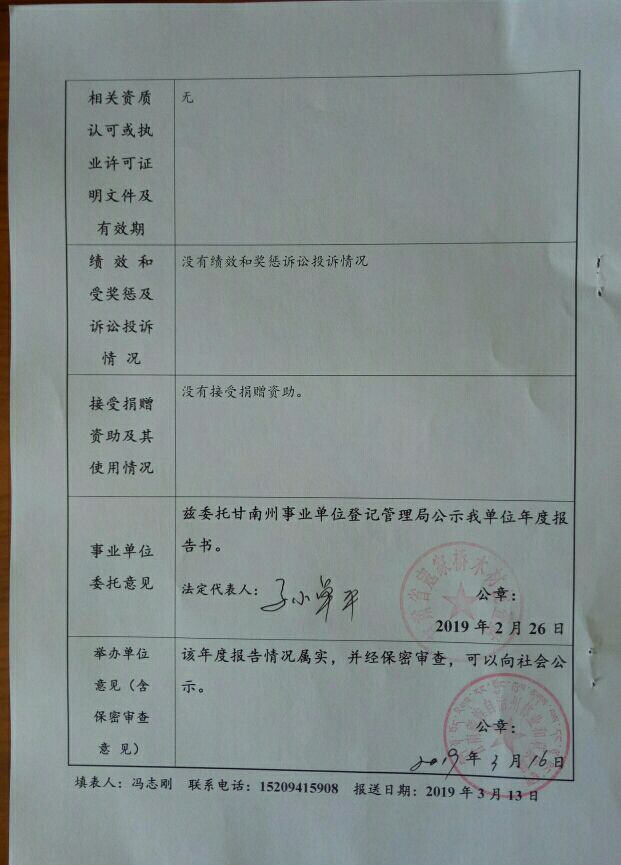 相关资质
认可或执
业许可证
明文件及
有效期
无
绩效和
受奖惩及
诉讼投诉
情况
没有绩效和奖惩诉讼投诉情况
接受捐赠
资助及其
使用情况
没有接受捐赠资助。
事业单位
委托意见
兹委托甘南州事业单位登记管理局公示我单位年度报
告书。
法定代表人：
公章：
2019年2月26日
举办单位
意见（含
保密审查
意见）
该年度报告情况属实，并经保密审查，可以向社会公
示。
公章：
2019年3月16日
填表人：冯志刚 联系电话：15209415908 报送日期：2019年3月13日